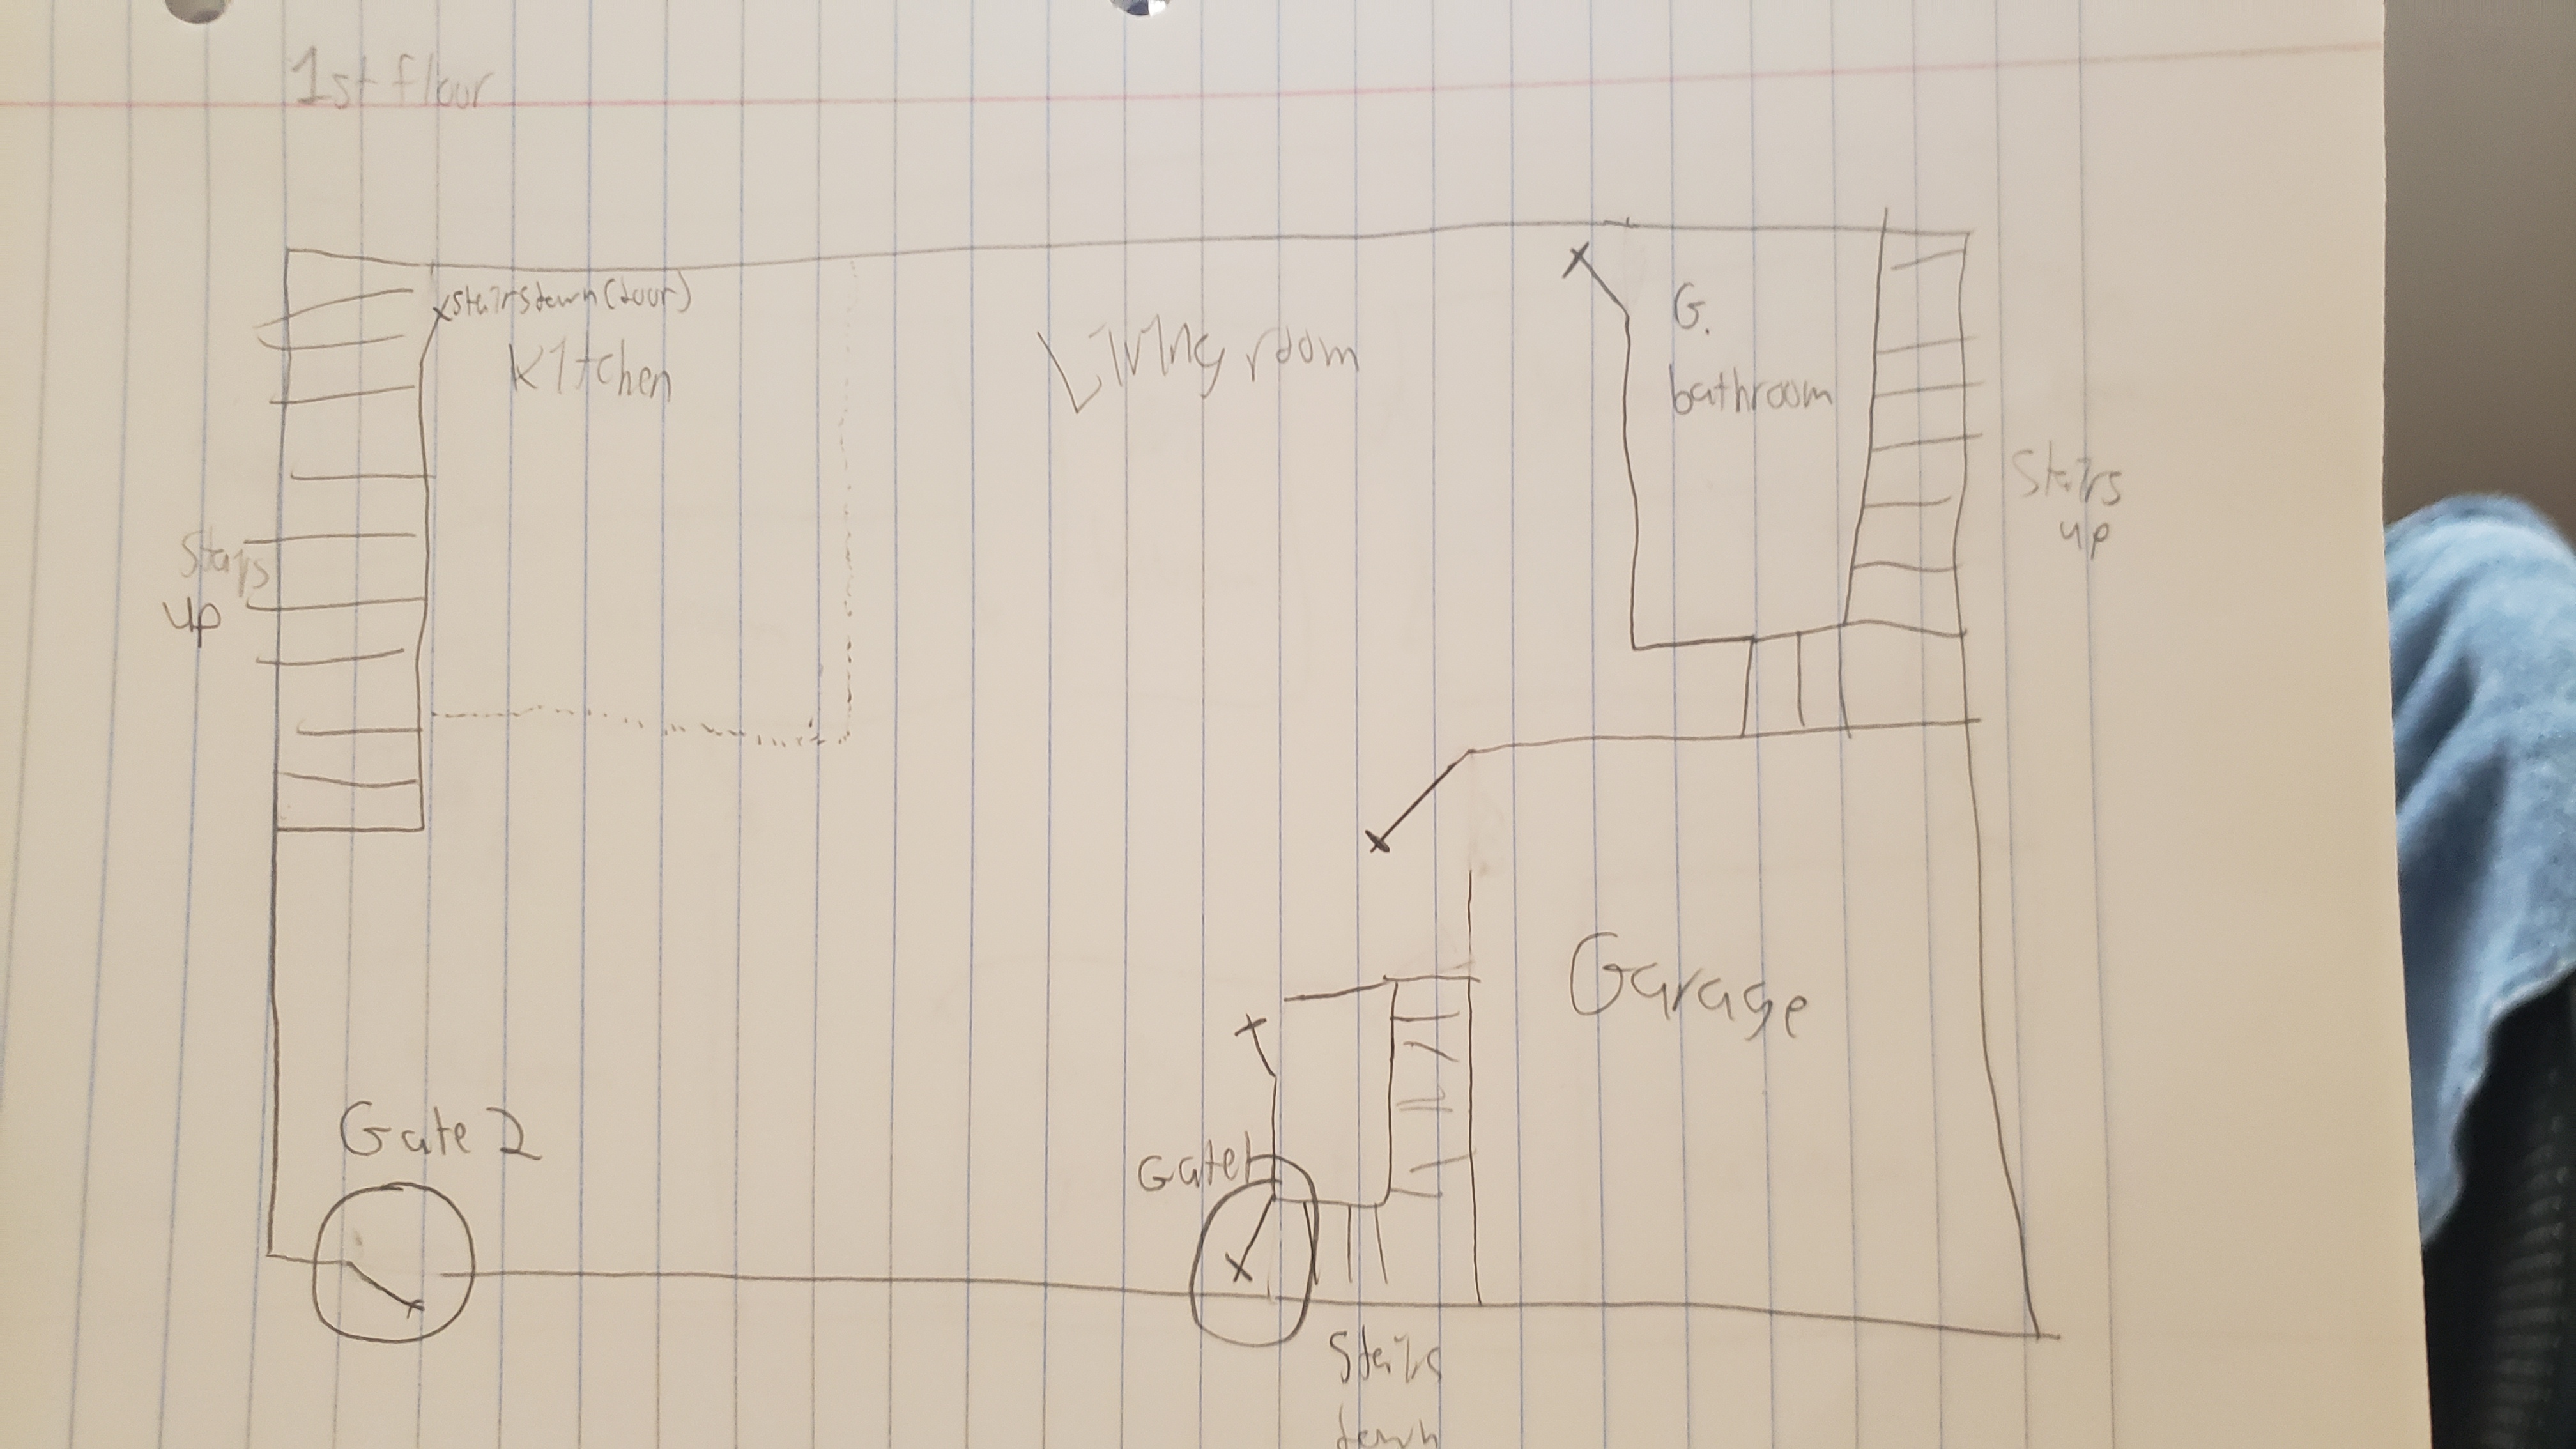 1st floor
stairs down (door)
Kitchen
Living room
G.
bathroom
Stairs
up
Stairs
up
Garage
Gate 2
Gate 1
Stairs
down